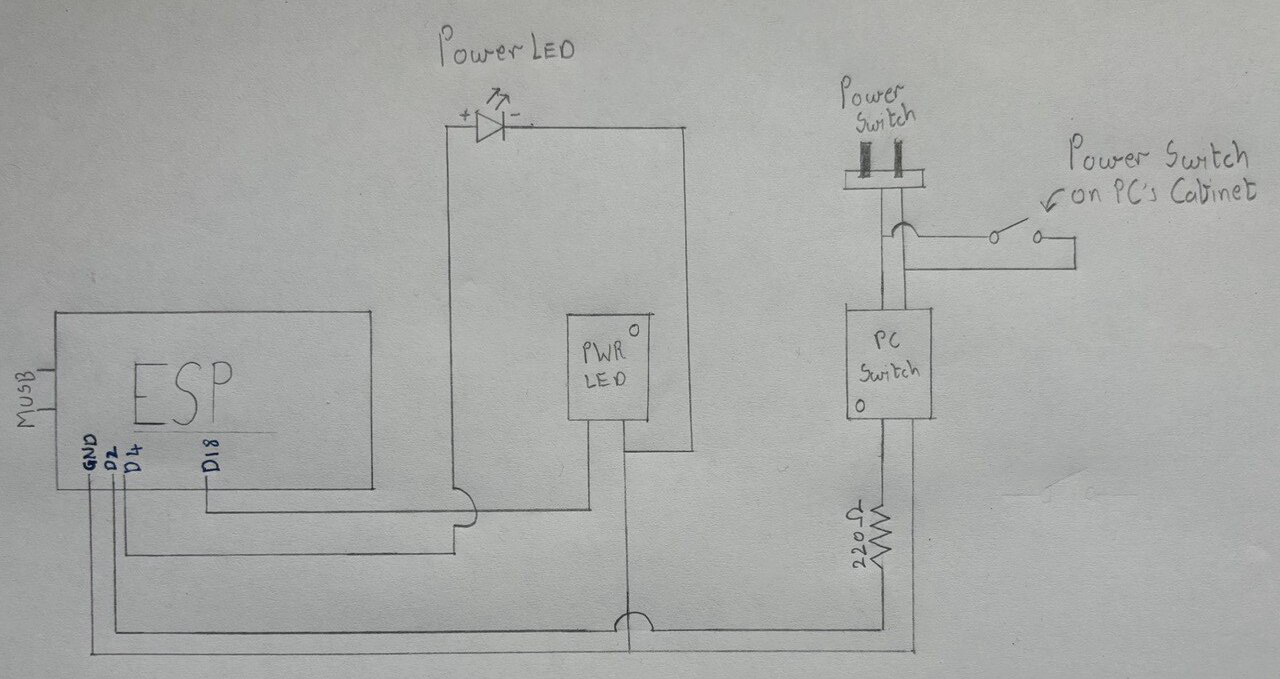 Power LED
+ -
Power
Switch
Power Switch
on PC's Cabinet
MUSB
ESP
GND
D2
D4
D18
PWR
LED
PC
Switch
220Ω